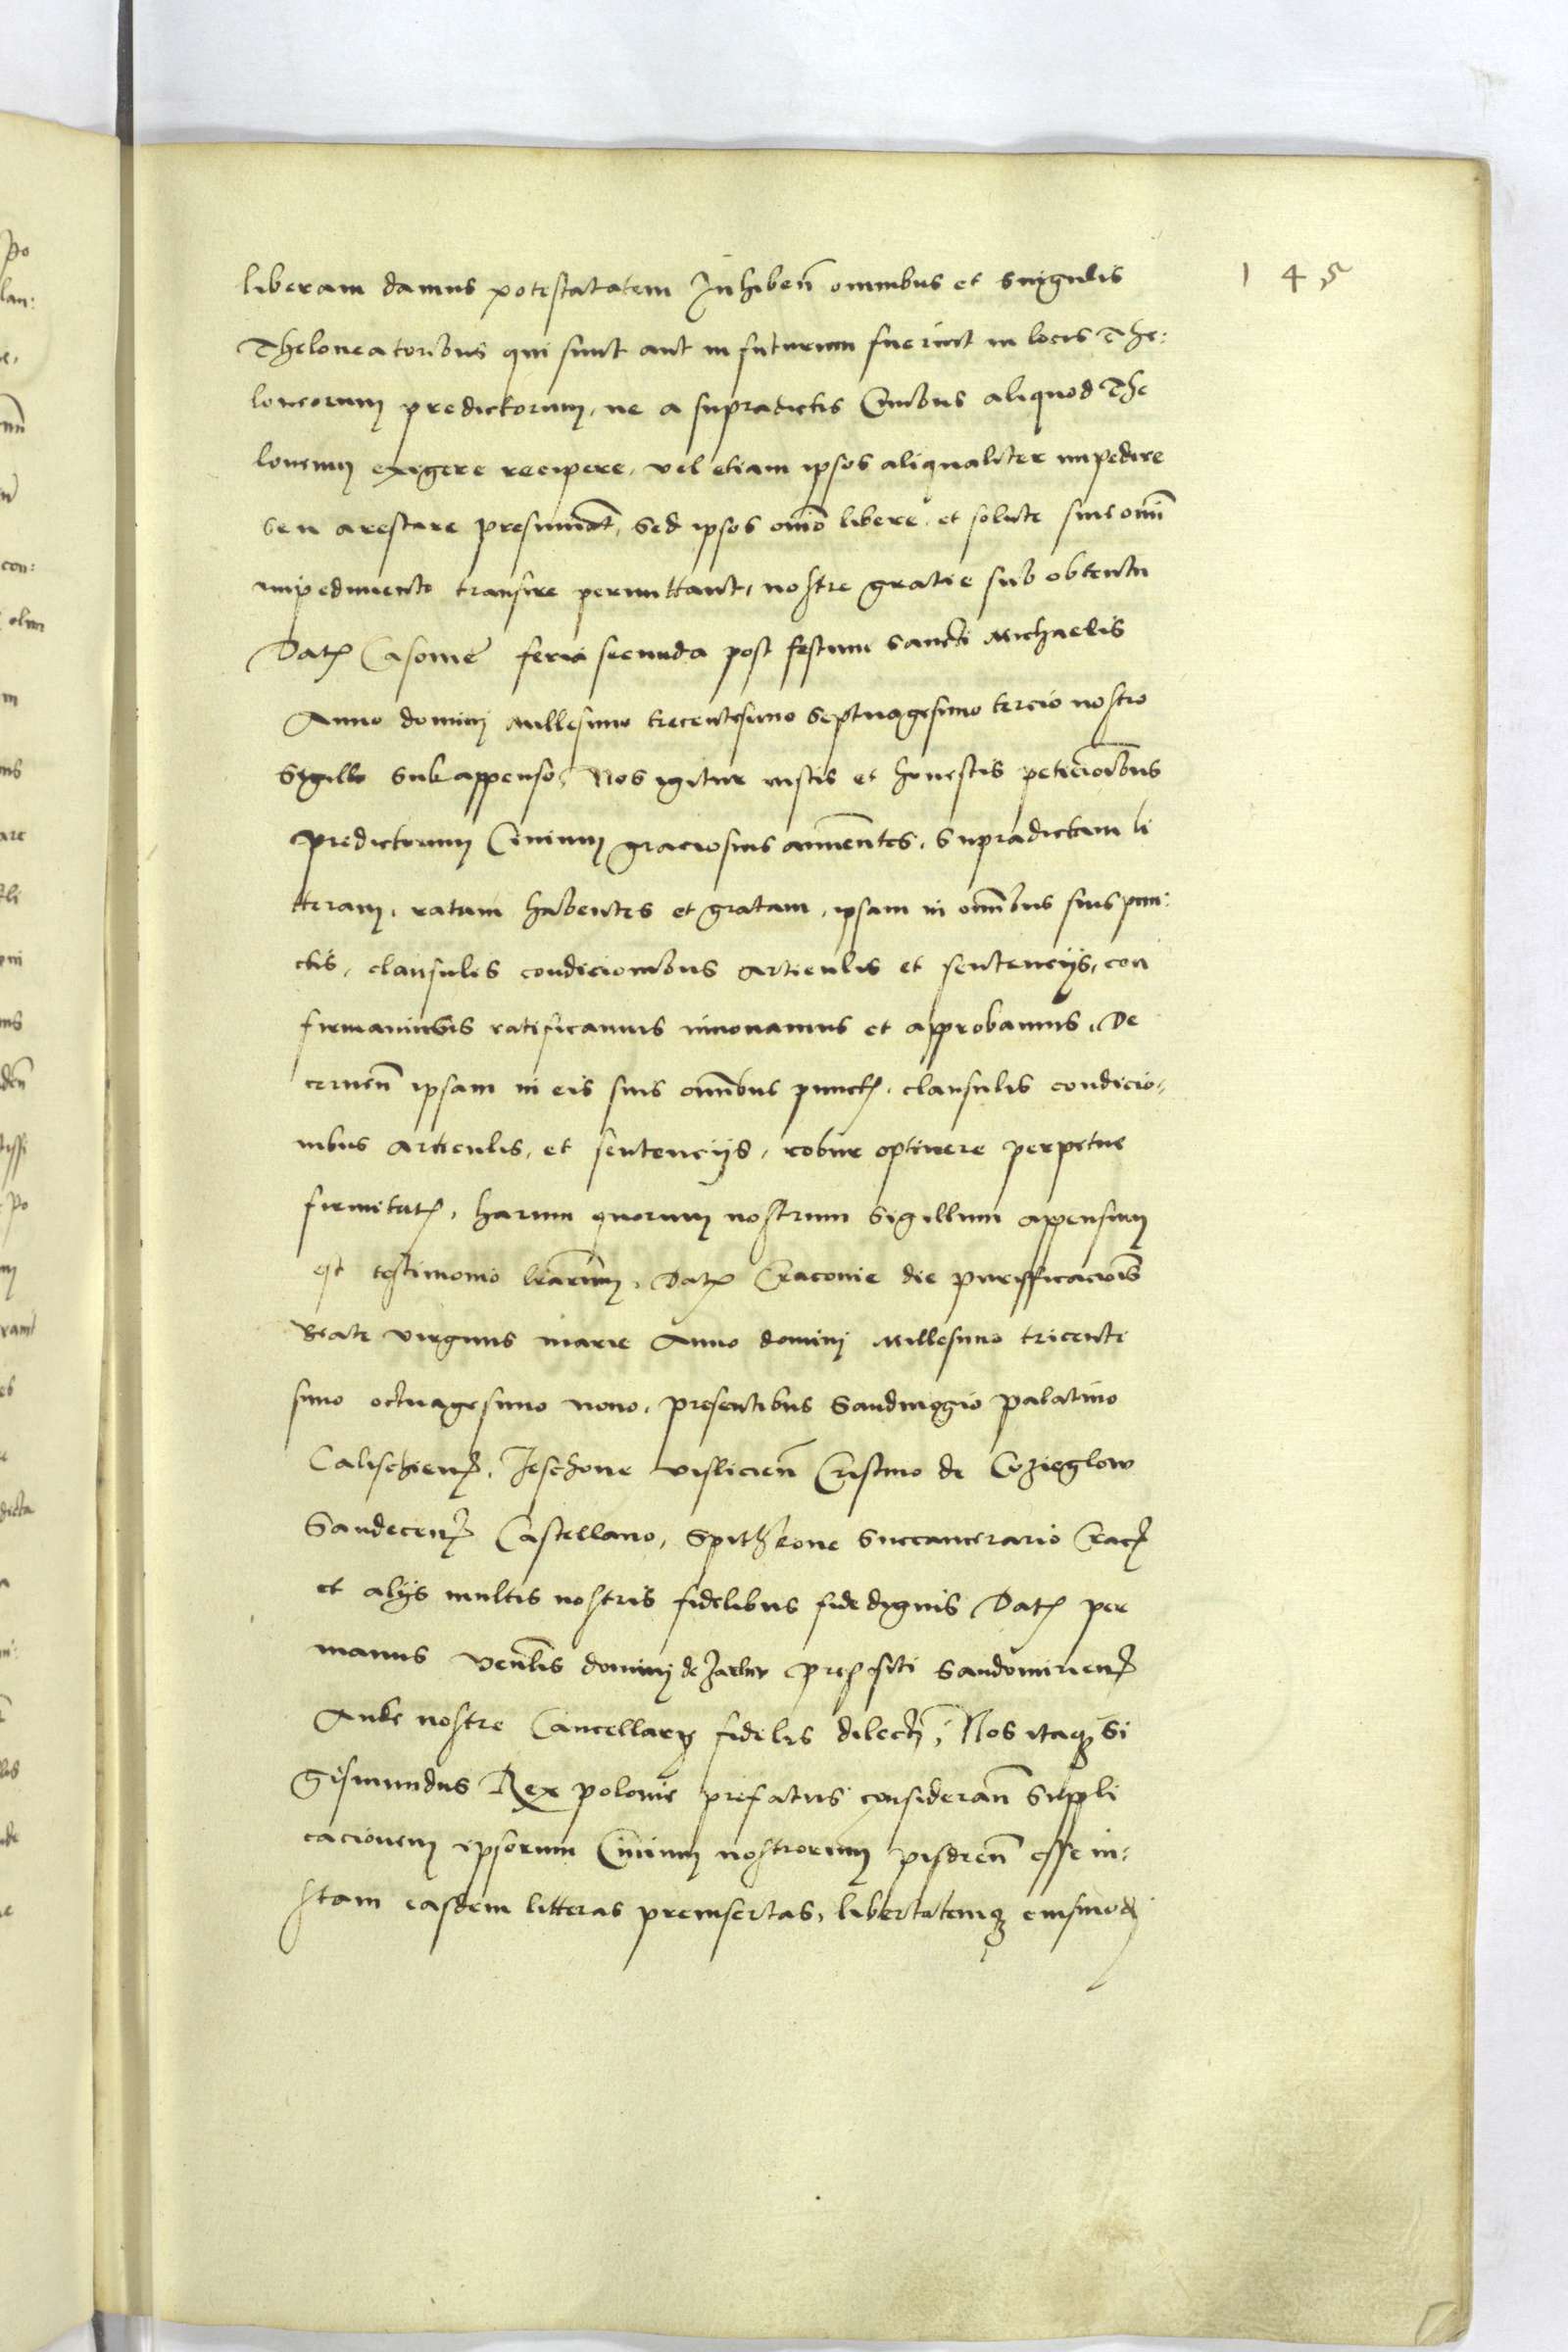 145
liberam damus potestatatem Inhiben̄ omnibus et singulis
Theloneatoribus qui sunt aut in futurum fuerint in locis The:
loneorum predictorum, ne a supradictis Civibus aliquod The
loneum exigere recipere, vel etiam ipsos aliqualiter impedire
seu arestare presumāt, Sed ipsos om̄o libere et solute sine omī
impedimento transire permittant, nostre gratie sub obtentu
Dat Casomē feria secunda post festum Sancti Michaelis
Anno dominj Millesimo trecentesimo Septuagesimo tercio nostro
Sigillo Subappenso, Nos igitur iustis et honestis peticioībus
predictorum Civium graciosius annuentes, Supradictam li
tteram, ratam habentes et gratam, ipsam in om̄ibus suis pun:
ctis, clausulis condicionibus articulis et sentencijs, con
firmavimus ratificamus innovamus et approbamus, De
cernen̄ ipsam in eis suis om̄ibus punct, clausulis condicio:
nibus articulis, et sentencijs, robur optinere perpetue
firmitat, harum quorum nostrum Sigillum appensum
est testimonio lrārum, Dat Cracovie die purifficaciōis
Beate virginis marie Anno dominj Millesimo tricente
simo octuagesimo nono, presentibus Sandivogio palatino
Calischien, Jeschone vislicien̄ Cristino de Cozieglow
Sandecen Castellano, Spithkone Succamerario Crac
et alijs multis nostris fidelibus fidedignis Dat per
manus ven̄lis dominj de prepositi Sandomirien
Aule nostre Cancellarij fidelis dilectj, Nos itaq Si
gismundus Rex polonie prefatus consideran̄ Suppli
cacionem ipsorum Civium nostrorum pisdren̄ esse iu:
stam easdem litteras preinsertas, libertatemq eiusmodj